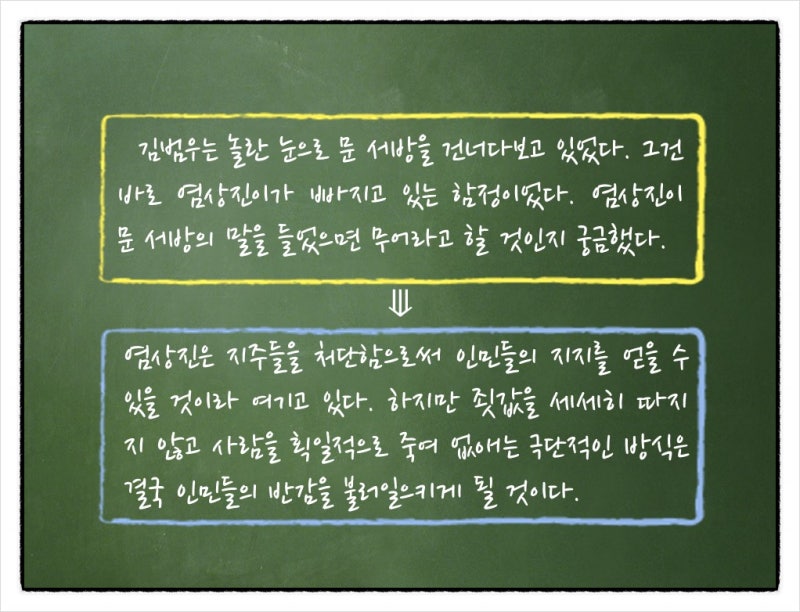 김범우는 놀란 눈으로 문 서방을 건너다보고 있었다. 그건
바로 염상진이가 빠지고 있는 함정이었다. 염상진이
문 서방의 말을 들었으면 무어라고 할 것인지 궁금했다.
⇓
염상진은 지주들을 처단함으로써 인민들의 지지를 얻을 수
있을 것이라 여기고 있다. 하지만 죗값을 세세히 따지
지 않고 사람을 획일적으로 죽여 없애는 극단적인 방식은
결국 인민들의 반감을 불러일으키게 될 것이다.